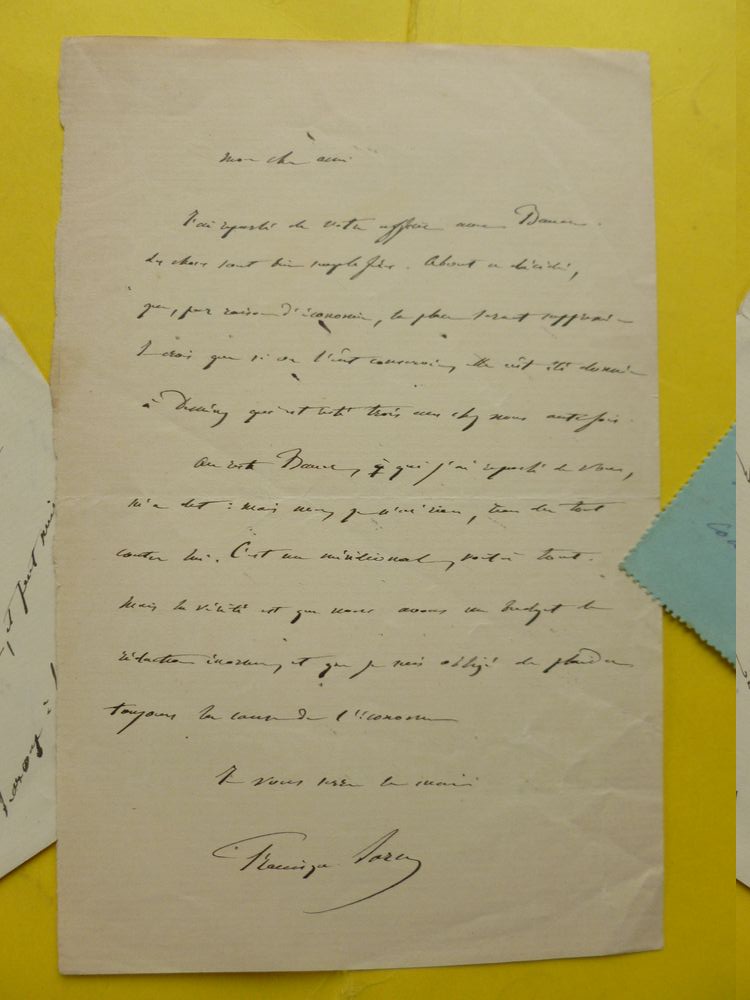 mon cher ami
J'ai reparlé de votre affaire avec
les choses sont bien simplifiées. About a décidé,
que, par raison d'économie, la place serait supprimée
Je crois que si on l'eût conservée, elle eût été donnée
à qui est resté trois ans chez nous autrefois.
Au reste à qui j'ai reparlé de vous,
m'a dit : mais moi, je n'ai rien, rien du tout
contre lui. C'est un méridional, voilà tout.
Mais la vérité est que nous avons un budget de
rédaction énorme, et que je suis obligé de plaider
toujours la cause de l'économie
Je vous serre la main
Francisque Sarcey
il peut